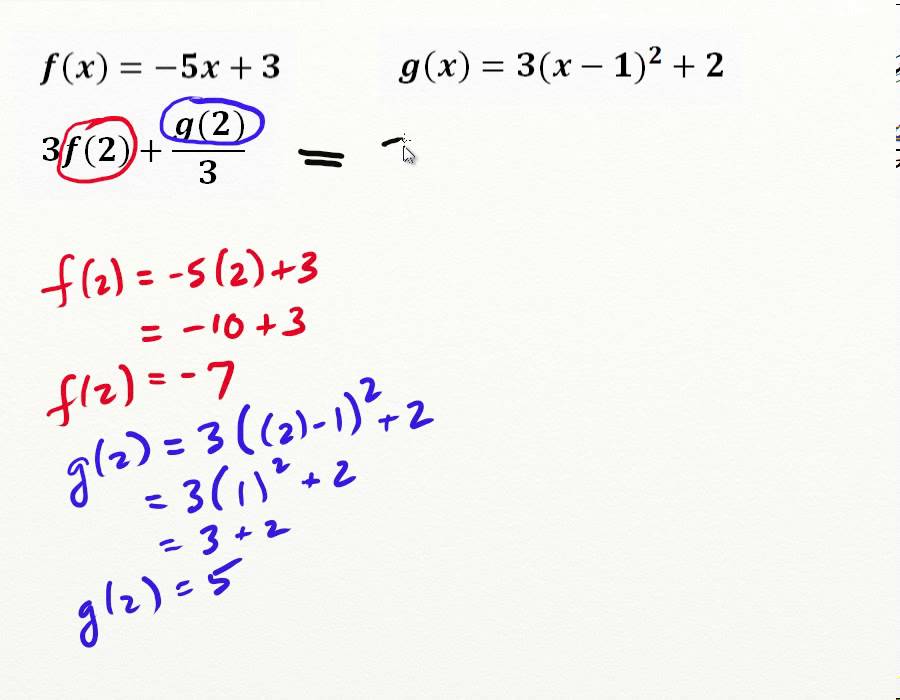 f(x) = −5x + 3
g(x) = 3(x − 1)² + 2
3f(2) + g(2)/3 =
f(2) = -5(2)+3
= -10+3
f(2) = -7
g(2) = 3((2)-1)²+2
= 3(1)²+2
= 3+2
g(2) = 5